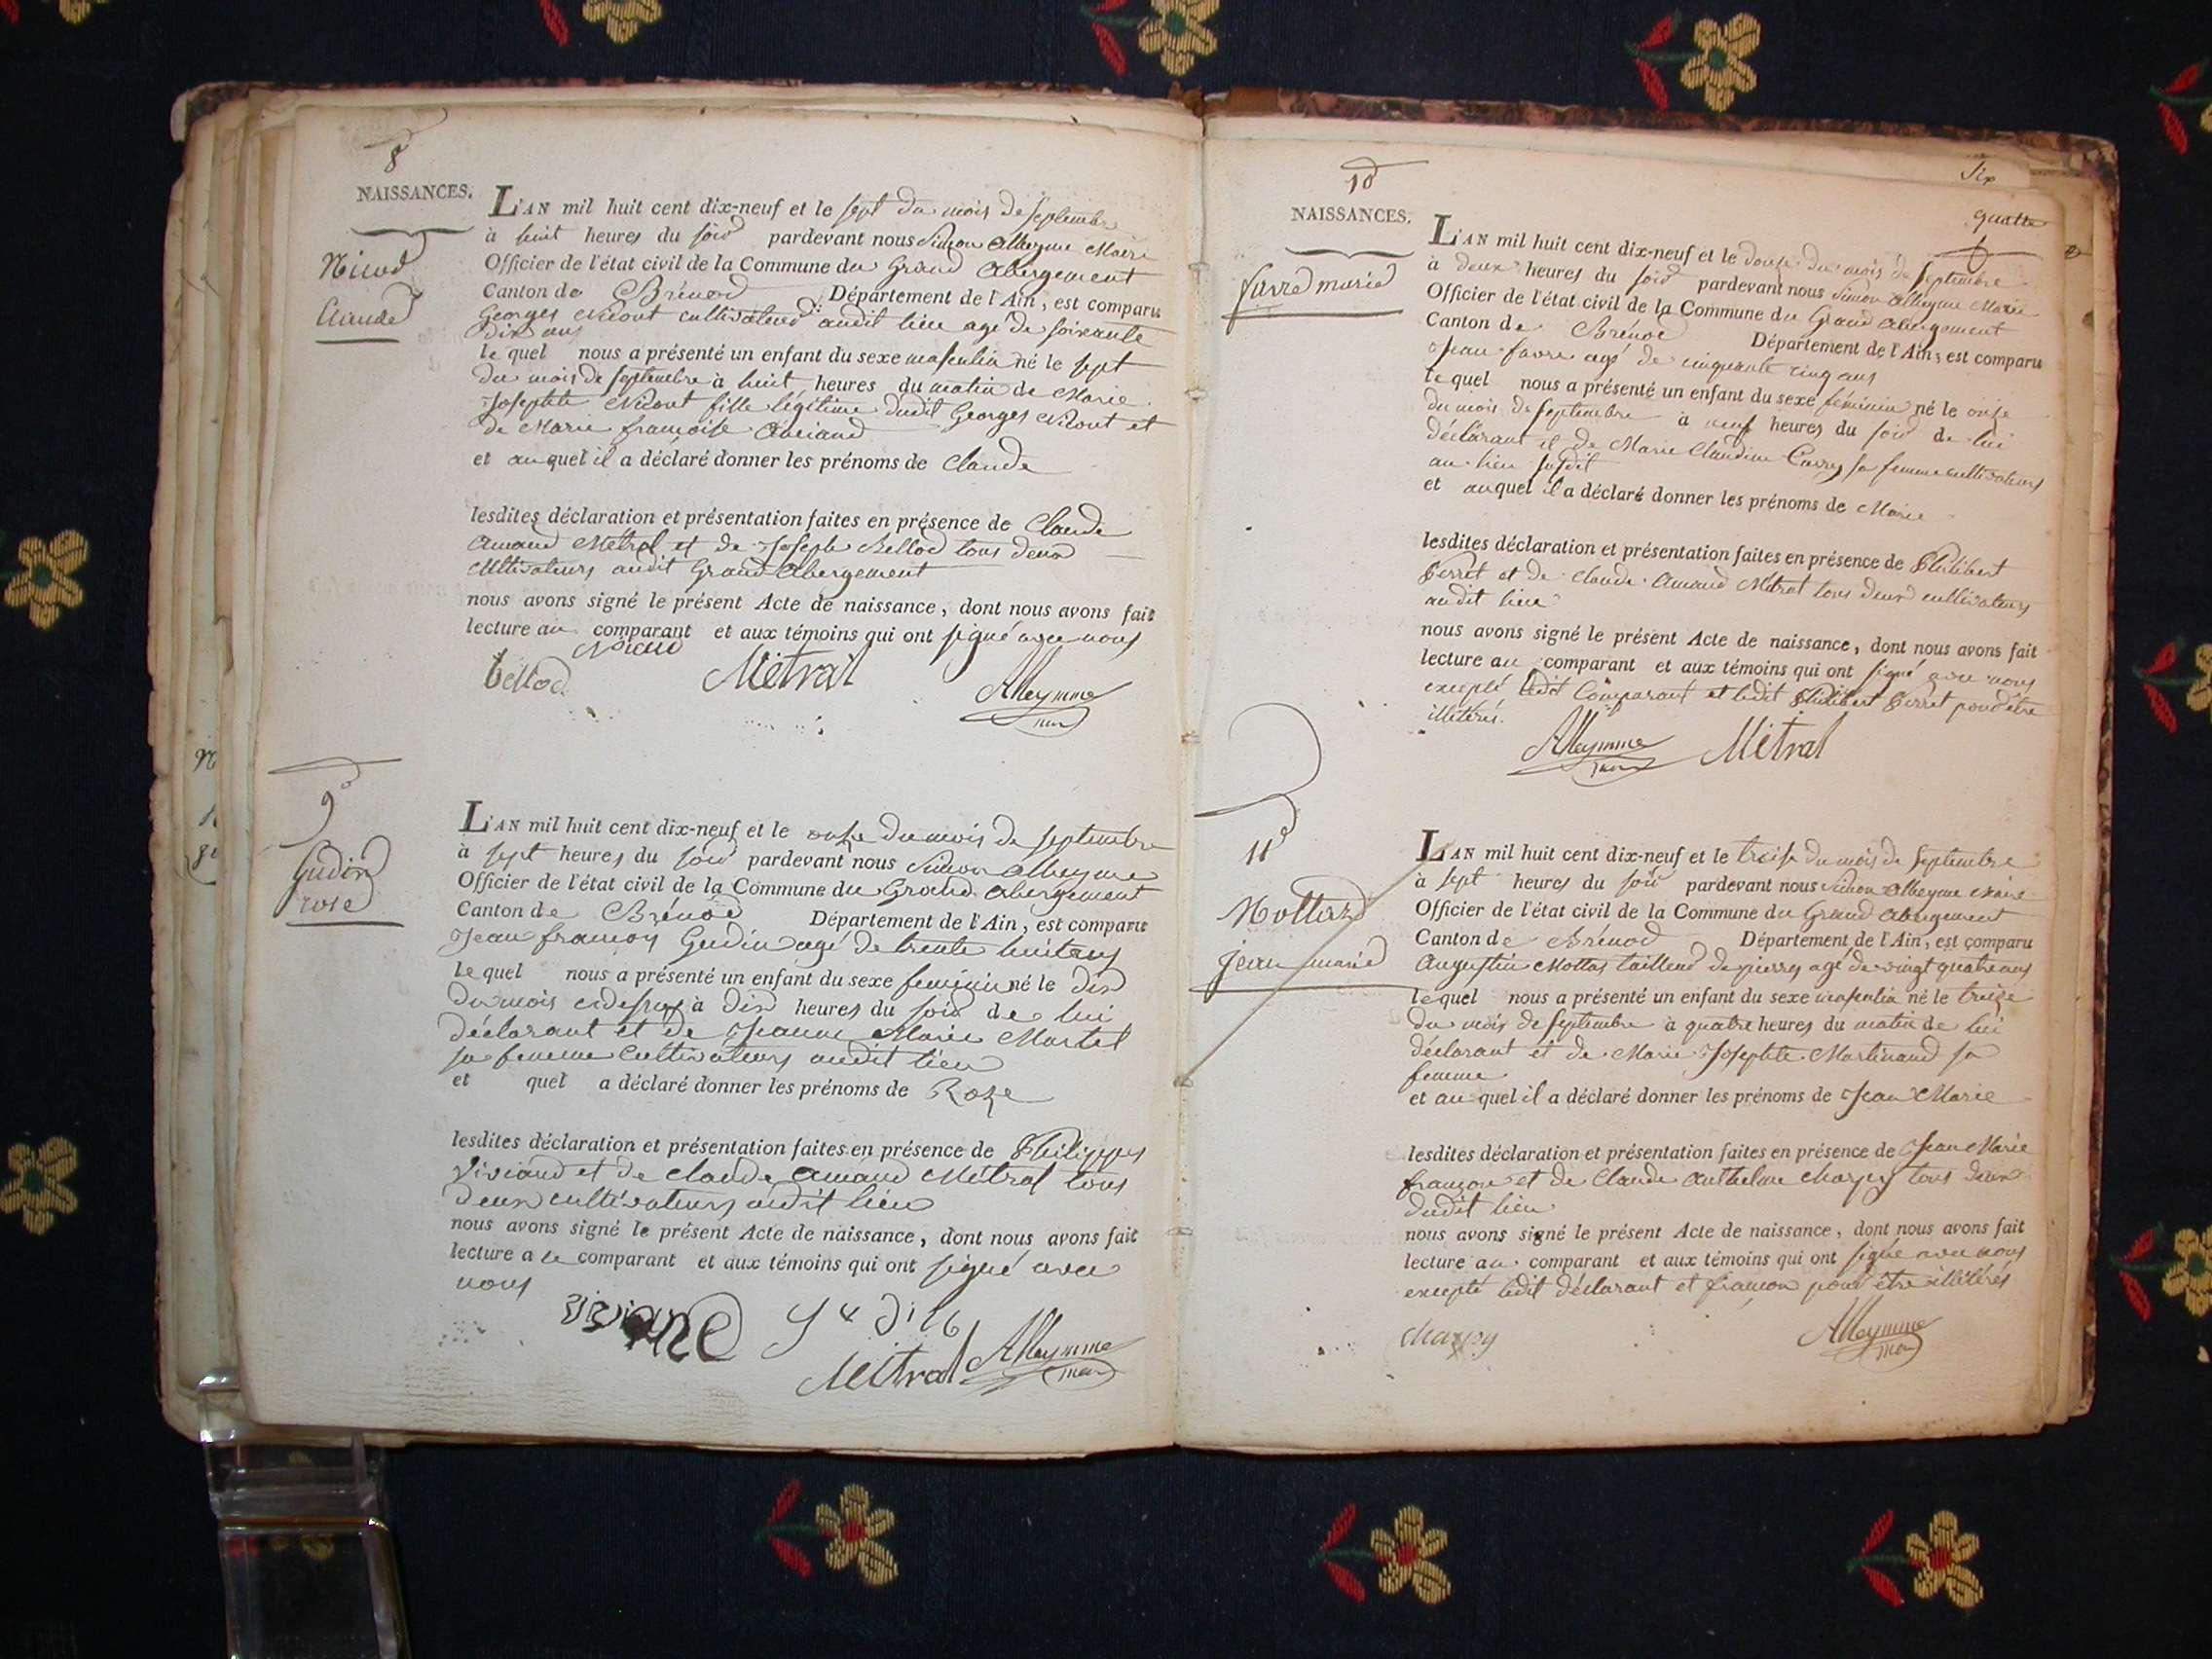 8
NAISSANCES.
L'AN mil huit cent dix-neuf et le sept du mois de septembre
à huit heures du soir pardevant nous Simon Alleyme Maire
Officier de l'état civil de la Commune du Grand Abergement
Nicod
Claude
Canton de Brénod Département de l'Ain, est comparu
Georges Nicout cultivateur audit lieu agé de soixante
dix ans
le quel nous a présenté un enfant du sexe masculin né le sept
du mois de septembre à huit heures du matin de Marie
Josephte Nicout fille légitime dudit Georges Nicout et
de Marie françoise
et auquel il a déclaré donner les prénoms de Claude
lesdites déclaration et présentation faites en présence de Claude
Amand Métral et de Joseph Bellod tous deux
cultivateurs audit Grand Abergement
nous avons signé le présent Acte de naissance, dont nous avons fait
lecture au comparant et aux témoins qui ont signé avec nous
Nicod
bellod Métral Alleymme
9
Gudin
rose
L'AN mil huit cent dix-neuf et le onze du mois de septembre
à sept heures du soir pardevant nous Simon Alleyme
Officier de l'état civil de la Commune du Grand Abergement
Canton de Brénod Département de l'Ain, est comparu
Jean françois Gudin agé de trente huit ans
le quel nous a présenté un enfant du sexe feminin né le dix
du mois cidessus à dix heures du soir de lui
déclarant et de Jeanne Marie Martel
sa femme cultivateurs audit lieu
et quel a déclaré donner les prénoms de Roze
lesdites déclaration et présentation faites en présence de Philippes
Viviand et de Claude Amand Métral tous
deux cultivateurs audit lieu
nous avons signé le présent Acte de naissance, dont nous avons fait
lecture a le comparant et aux témoins qui ont signé avec
nous
Métral Alleymme
Six
quatre
10
NAISSANCES.
favre marie
L'AN mil huit cent dix-neuf et le douze du mois de septembre
à deux heures du soir pardevant nous Simon Alleyme Maire
Officier de l'état civil de la Commune du Grand Abergement
Canton de Brénod Département de l'Ain, est comparu
Jean favre agé de cinquante cinq ans
le quel nous a présenté un enfant du sexe féminin né le onze
du mois de septembre à neuf heures du soir de lui
déclarant et de Marie Claudine sa femme cultivateurs
au lieu susdit
et auquel il a déclaré donner les prénoms de Marie
lesdites déclaration et présentation faites en présence de Philibert
Perret et de Claude Amand Métral tous deux cultivateurs
audit lieu
nous avons signé le présent Acte de naissance, dont nous avons fait
lecture au comparant et aux témoins qui ont signé avec nous
excepté ledit Comparant et ledit Philibert Perret pour être
illitérés.
Alleymme Métral
11
Mottaz
jean marie
L'AN mil huit cent dix-neuf et le treise du mois de septembre
à sept heures du soir pardevant nous Simon Alleyme Maire
Officier de l'état civil de la Commune du Grand Abergement
Canton de Brénod Département de l'Ain, est comparu
Augustin Mottas tailleur de pierres agé de vingt quatre ans
le quel nous a présenté un enfant du sexe masculin né le treize
du mois de septembre à quatre heures du matin de lui
déclarant et de Marie Josephte Martinand sa
femme
et au quel il a déclaré donner les prénoms de Jean Marie
lesdites déclaration et présentation faites en présence de Jean Marie
françon et de Claude Anthelme charpy tous deux
dudit lieu
nous avons signé le présent Acte de naissance, dont nous avons fait
lecture au comparant et aux témoins qui ont signé avec nous
excepté ledit déclarant et françon pour être illitérés
charpy Alleymme